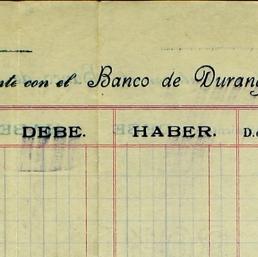 con el Banco de Durang
DEBE. HABER. D.